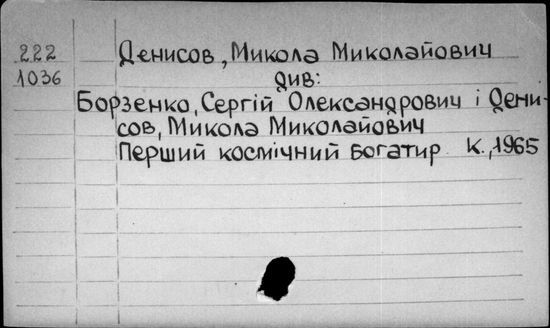 222 Денисов, Микола Миколайович
1036 див:
Борзенко, Сергій Олександрович і Дени-
сов, Микола Миколайович
Перший космічний богатир К., 1965